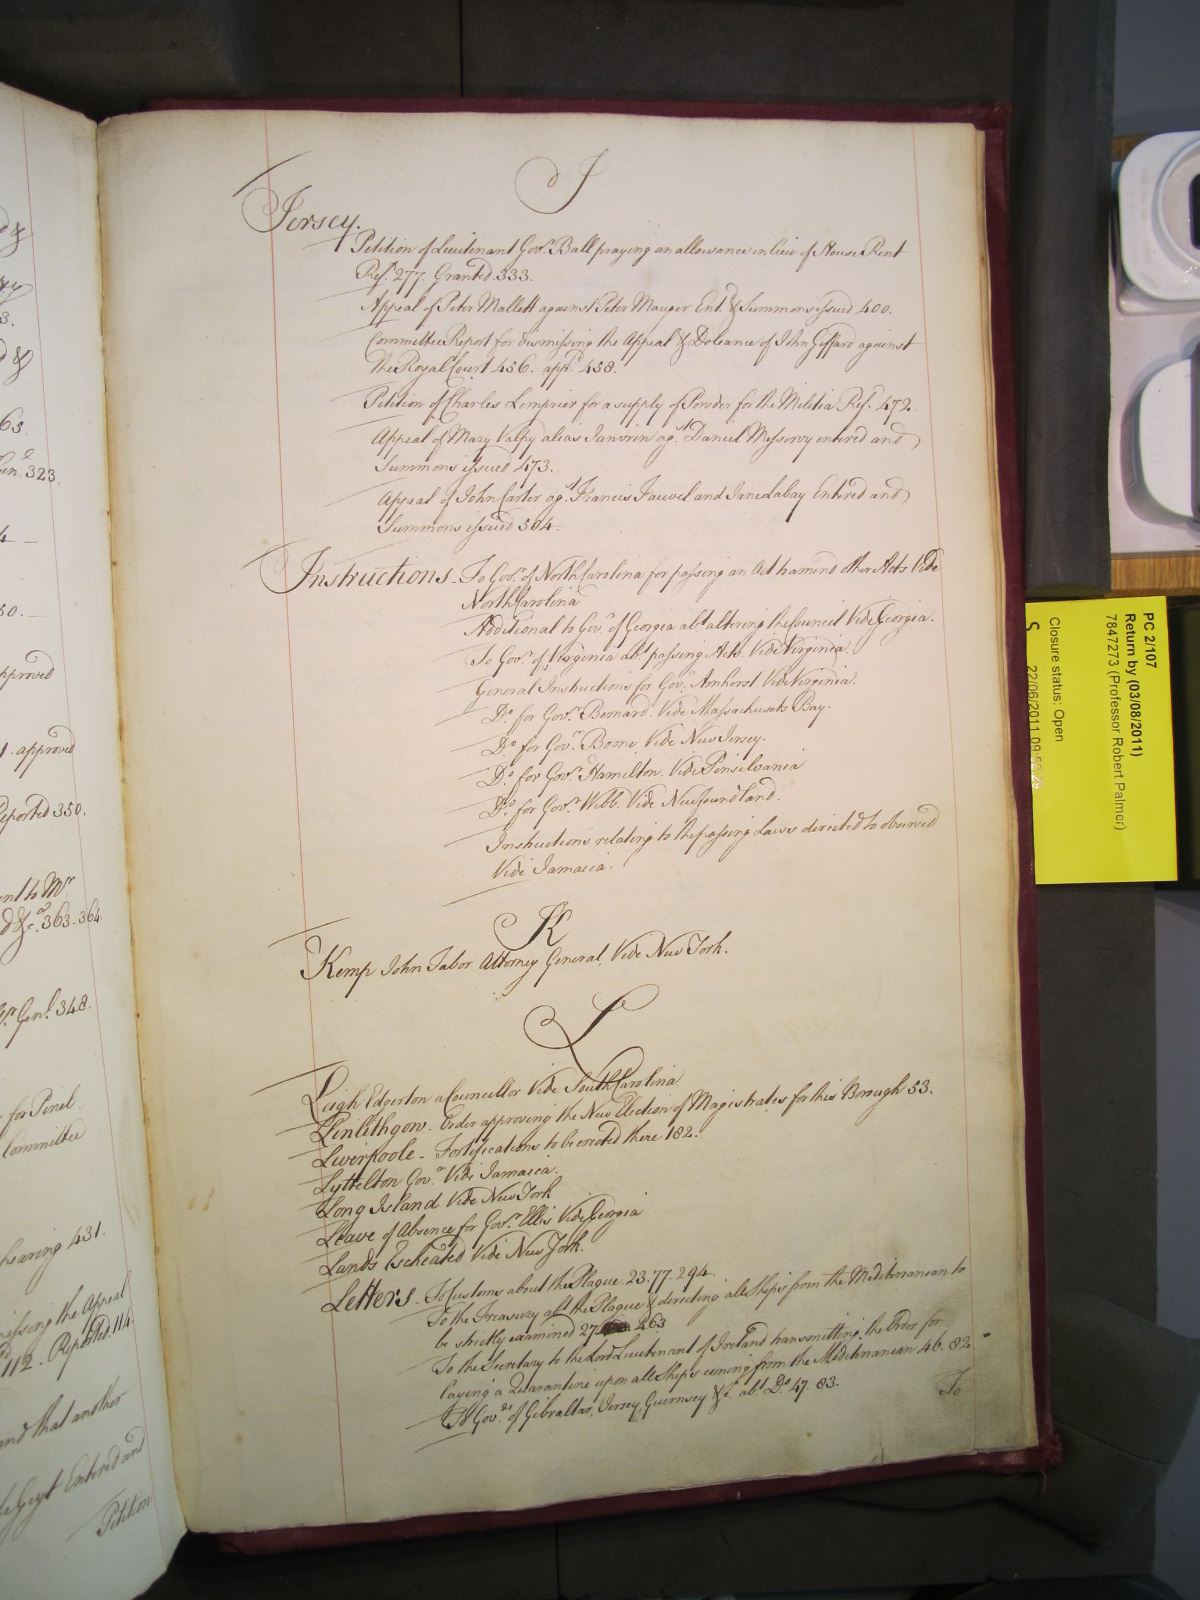 J
Jersey.
Petition of Lieutenant Govr. Ball praying an allowance in lieu of House Rent
Refd. 277. Granted 333.
Appeal of Peter Mallett against Peter Mauger Ent. & Summons issued 400.
Committee Report for dismissing the Appeal & Doleance of John Giffard against
the Royal Court 456. appd. 458.
Petition of Charles Lemprier for a supply of Powder for the Militia. Refd. 472.
Appeal of Mary Valpy alias Janvrin agt. Daniel Messervy entered and
Summons issued 473.
Appeal of John Carter agt. Francis Fauvel and Jane Labay Entered and
Summons issued 504.
Instructions - To Govr. of North Carolina for passing an Act to amend other Acts Vide
North Carolina
Additional to Govr. of Georgia abt. altering the Council Vide Georgia.
To Govr. of Virginia abt. passing Acts. Vide Virginia.
General Instructions for Govr. Amherst Vide Virginia.
Do. for Govr. Bernard. Vide Massachusets Bay.
Do. for Govr. Boone. Vide New Jersey.
Do. for Govr. Hamilton. Vide Pensilvania
Do. for Govr. Webb. Vide Newfoundland.
Instructions relating to the passing Laws directed to observed
Vide Jamaica.
K
Kemp John Tabor Attorney General, Vide New York.
L
Leigh Edgerton a Councellor Vide South Carolina
Linlithgow - Order approving the New Election of Magistrates for this Borough 53.
Liverpoole - Fortifications to be erected there 182.
Lyttelton Govr. Vide Jamaica.
Long Island Vide New York
Leave of Absence for Govr. Ellis Vide Georgia
Lands Escheated Vide New York.
Letters - To Customs about the Plague. 23. 77. 294.
To the Treasury abt. the Plague & directing all Ships from the Mediterranean to
be strictly examined 27 263
To the Secretary to the Lord Lieutenant of Ireland transmitting the Order for
laying a Quarantine upon all Ships coming from the Mediterranean 46. 82.
To Govrs. of Gibraltar, Jersey, Guernsey &c. abt. Do. 47. 83.
To
323.
approved
approved
Reported 350.
ent to Mr.
363-364
Genl. 348.
Committee
hearing 431.
the Appeal
112. Reported. 114.
and that another
Entered and
Petition
PC 2/107
Return by (03/08/2011)
7847273 (Professor Robert Palmer)
Closure status: Open
S
22/06/2011